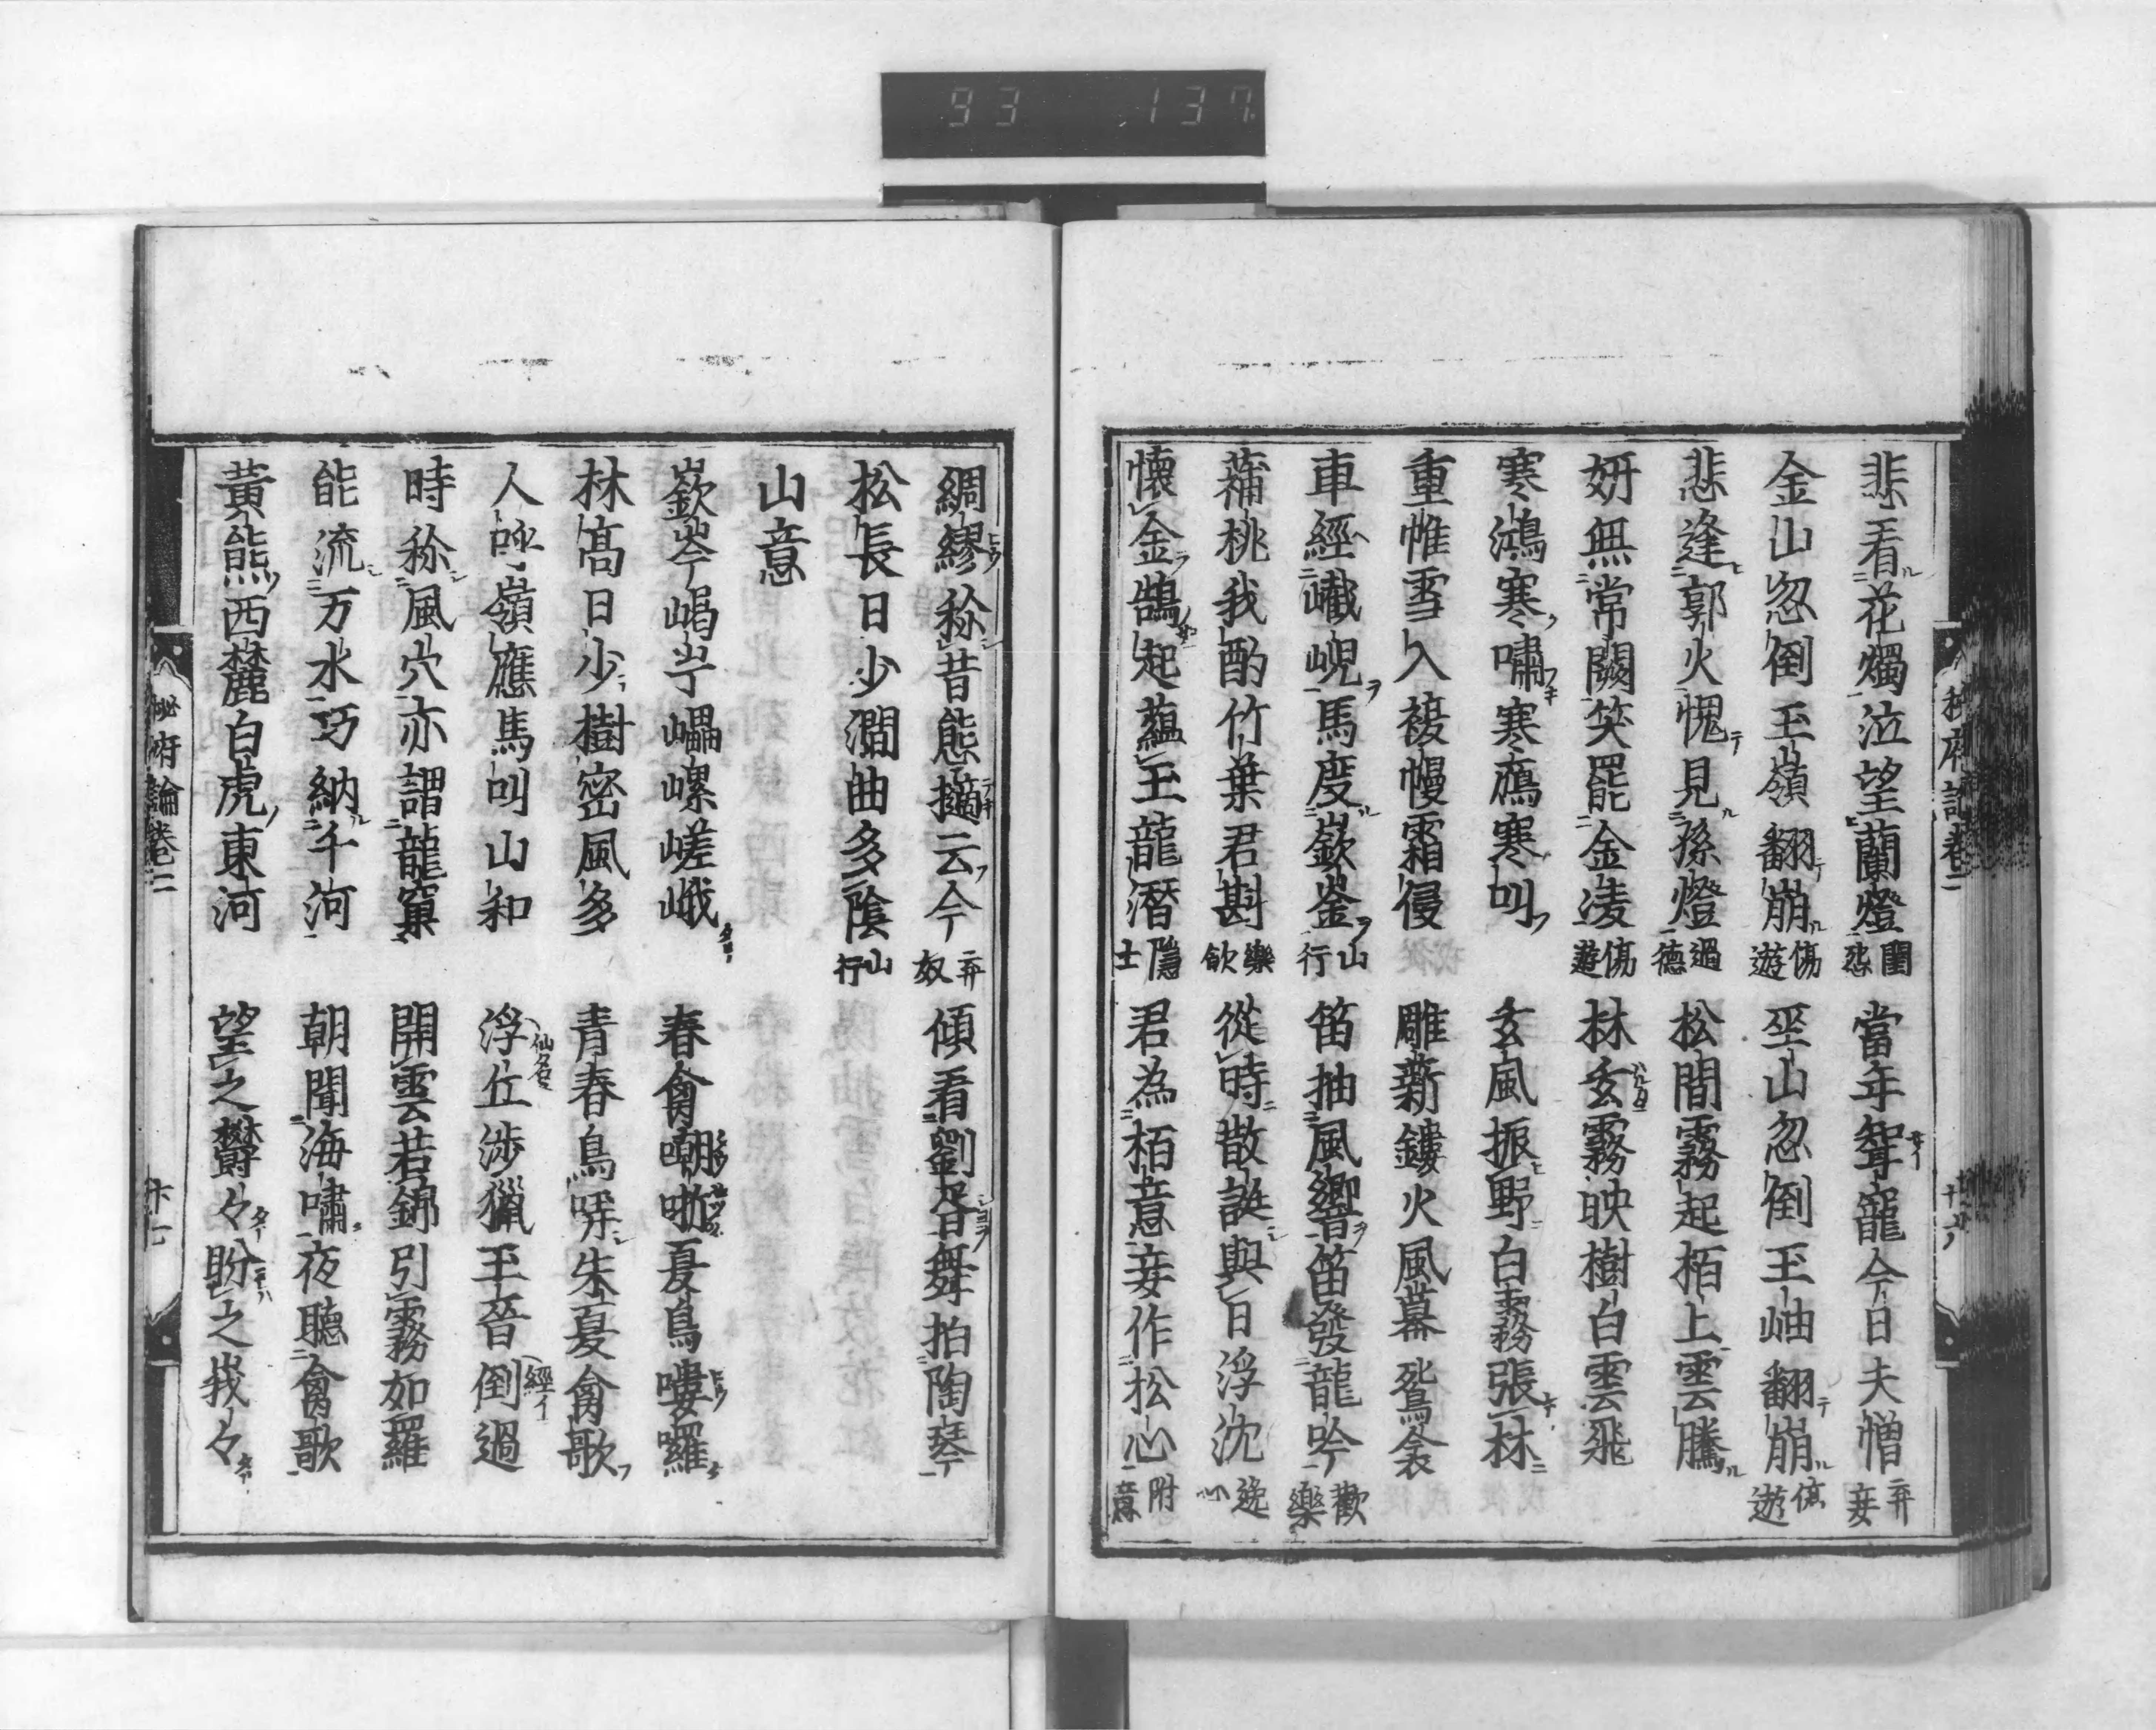 93 137
悲看花燭泣望蘭燈閨怨 當年聟寵今日夫憎弃妾
金山忽倒玉嶺翻崩傷遊 巫山忽倒玉岫翻崩傷遊
悲逢郭火愧見孫燈過德 松間霧起栢上雲騰
妍無常闕笑罷金淩傷遊 林玄霧映樹白雲飛
寒鴻寒嘯寒鴈寒叫 玄風振野白霧張林
重帷雪入複幔霜侵 雕薪鏤火風幕鴛衾
車經巘峴馬度嶔崟山行 笛抽風響笛發龍吟歡樂
蒱桃我酌竹葉君斟樂飲 從時散誕與日浮沈逸心
懐金鵠起蘊玉龍潛隠士 君為栢意妾作松心附意
綢繆称昔態擿云今弃奴 傾看劉舞拍陶琴
松長日少澗曲多陰山行
山意
嶔岑嵑屶㠥嵺嵯峨 春禽嘲哳夏鳥嘍囉
林高日少樹密風多 青春鳥哢朱夏禽歌
人呼嶺應馬叫山和 浮丘仙名渉獵王晉倒經イ過
時称風穴亦謂龍窠 開雲若錦引霧如羅
能流万水巧納千河 朝聞海嘯夜聽禽歌
黃熊西麓白虎東河 望之欝々盼之峩々
秘府論卷二